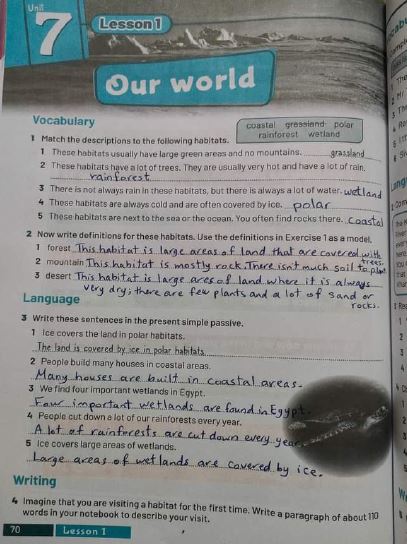 Unit
7
Lesson 1
Our world
Vocabulary
coastal grassland polar
rainforest wetland
1 Match the descriptions to the following habitats.
1 These habitats usually have large green areas and no mountains. grassland
2 These habitats have a lot of trees. They are usually very hot and have a lot of rain.
rainforest
3 There is not always rain in these habitats, but there is always a lot of water. wetland
4 These habitats are always cold and are often covered by ice. polar
5 These habitats are next to the sea or the ocean. You often find rocks there. coastal
2 Now write definitions for these habitats. Use the definitions in Exercise 1 as a model.
1 forest This habitat is large areas of land that are covered with trees.
2 mountain This habitat is mostly rock. There isn't much soil to plant
3 desert This habitat is large area of land where it is always
very dry; there are few plants and a lot of sand or
rocks.
Language
3 Write these sentences in the present simple passive.
1 Ice covers the land in polar habitats.
The land is covered by ice in polar habitats.
2 People build many houses in coastal areas.
Many houses are built in coastal areas.
3 We find four important wetlands in Egypt.
Four important wetlands are found in Egypt.
4 People cut down a lot of our rainforests every year.
A lot of rainforests are cut down every year.
5 Ice covers large areas of wetlands.
Large areas of wetlands are covered by ice.
Writing
4 Imagine that you are visiting a habitat for the first time. Write a paragraph of about 110
words in your notebook to describe your visit.
70 Lesson 1